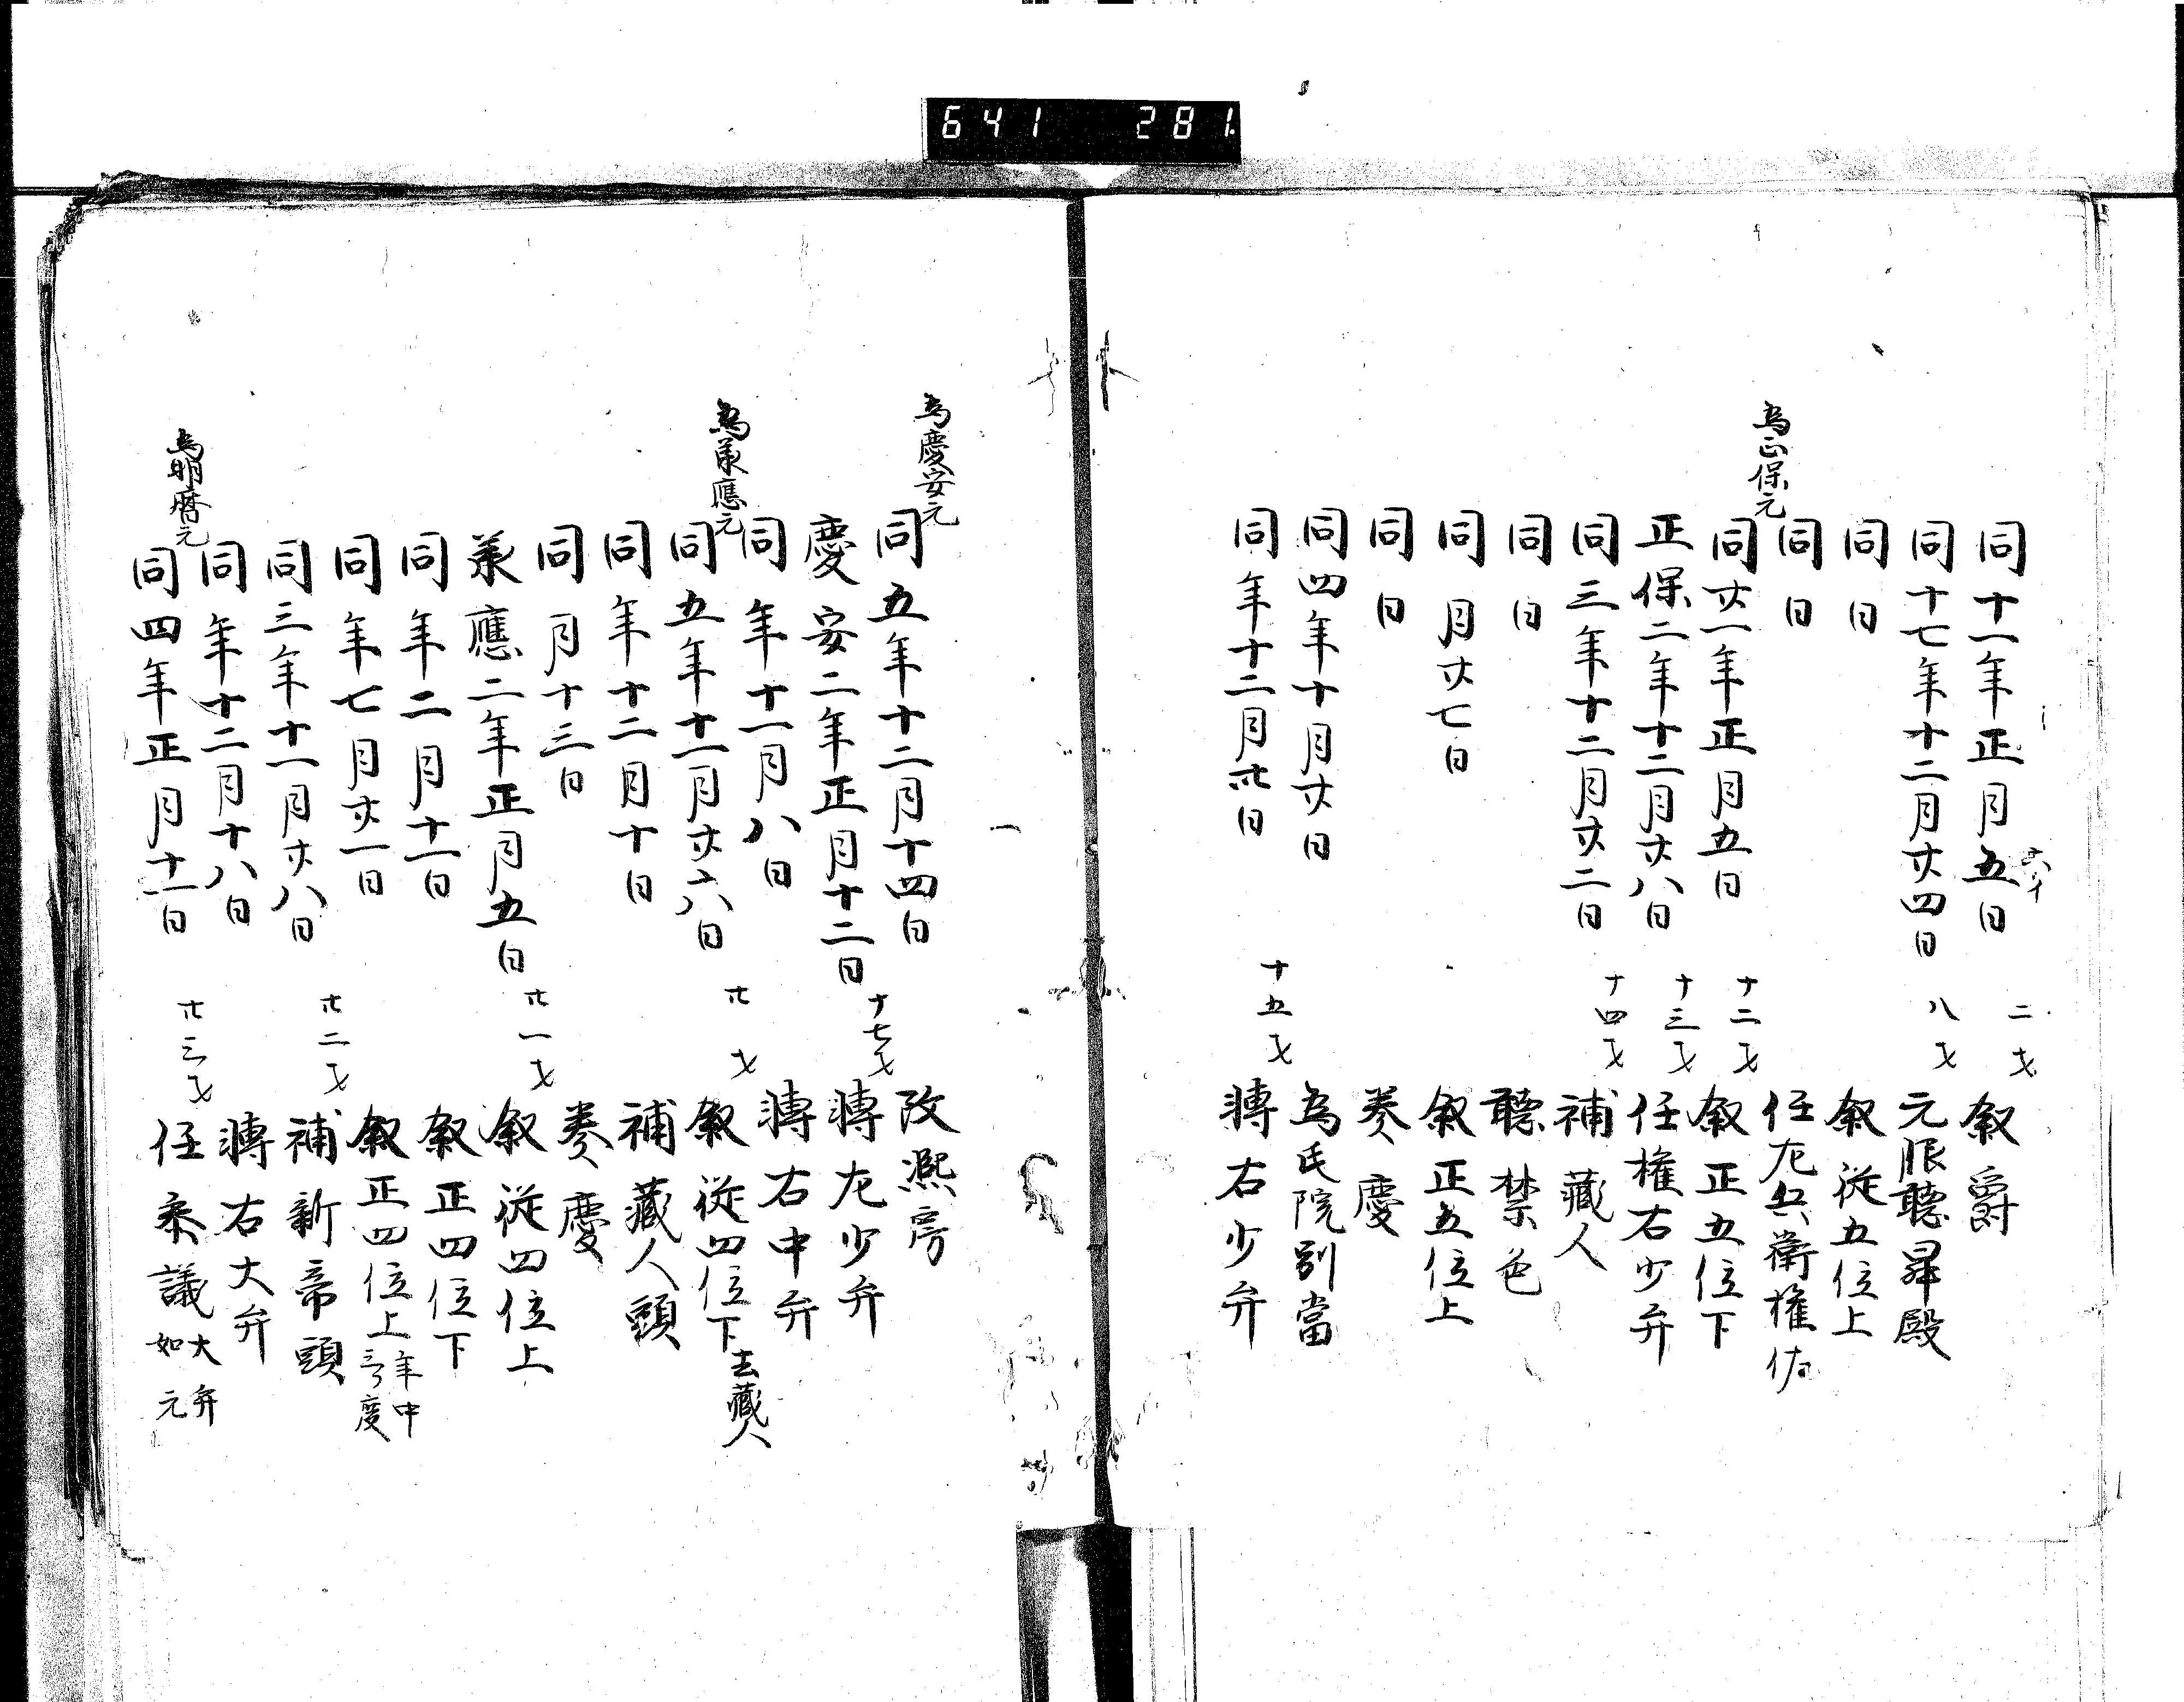 641 281
同十一年正月五日 二才 叙爵
同十七年十二月廿四日 八才 元服聴昇殿
同日 叙従五位上
同日 任左兵衛権佐
為正保元
同廿一年正月五日 十二才 叙正五位下
正保二年十二月廿八日 十三才 任権右少弁
同三年十二月廿二日 十四才 補蔵人
同日 聴禁色
同月廿七日 叙正五位上
同日 奏慶
同四年十月廿日 為氏院別當
同年十二月卅日 十五才 轉右少弁
為慶安元
同五年十二月十四日 改凞房
慶安二年正月十二日 十七才 轉左少弁
同年十一月八日 轉右中弁
為承應元
同五年十一月廿六日 廿才 叙従四位下去藏人
同年十二月十日 補藏人頭
同月十三日 奏慶
承應二年正月五日 廿一才 叙従四位上
同年二月十一日 叙正四位下
同年七月廿一日 叙正四位上年中三ケ度
同三年十一月廿八日 廿二才 補新帝頭
同年十二月十八日 轉右大弁
為明暦元
同四年正月十一日 廿三才 任参議大弁如元